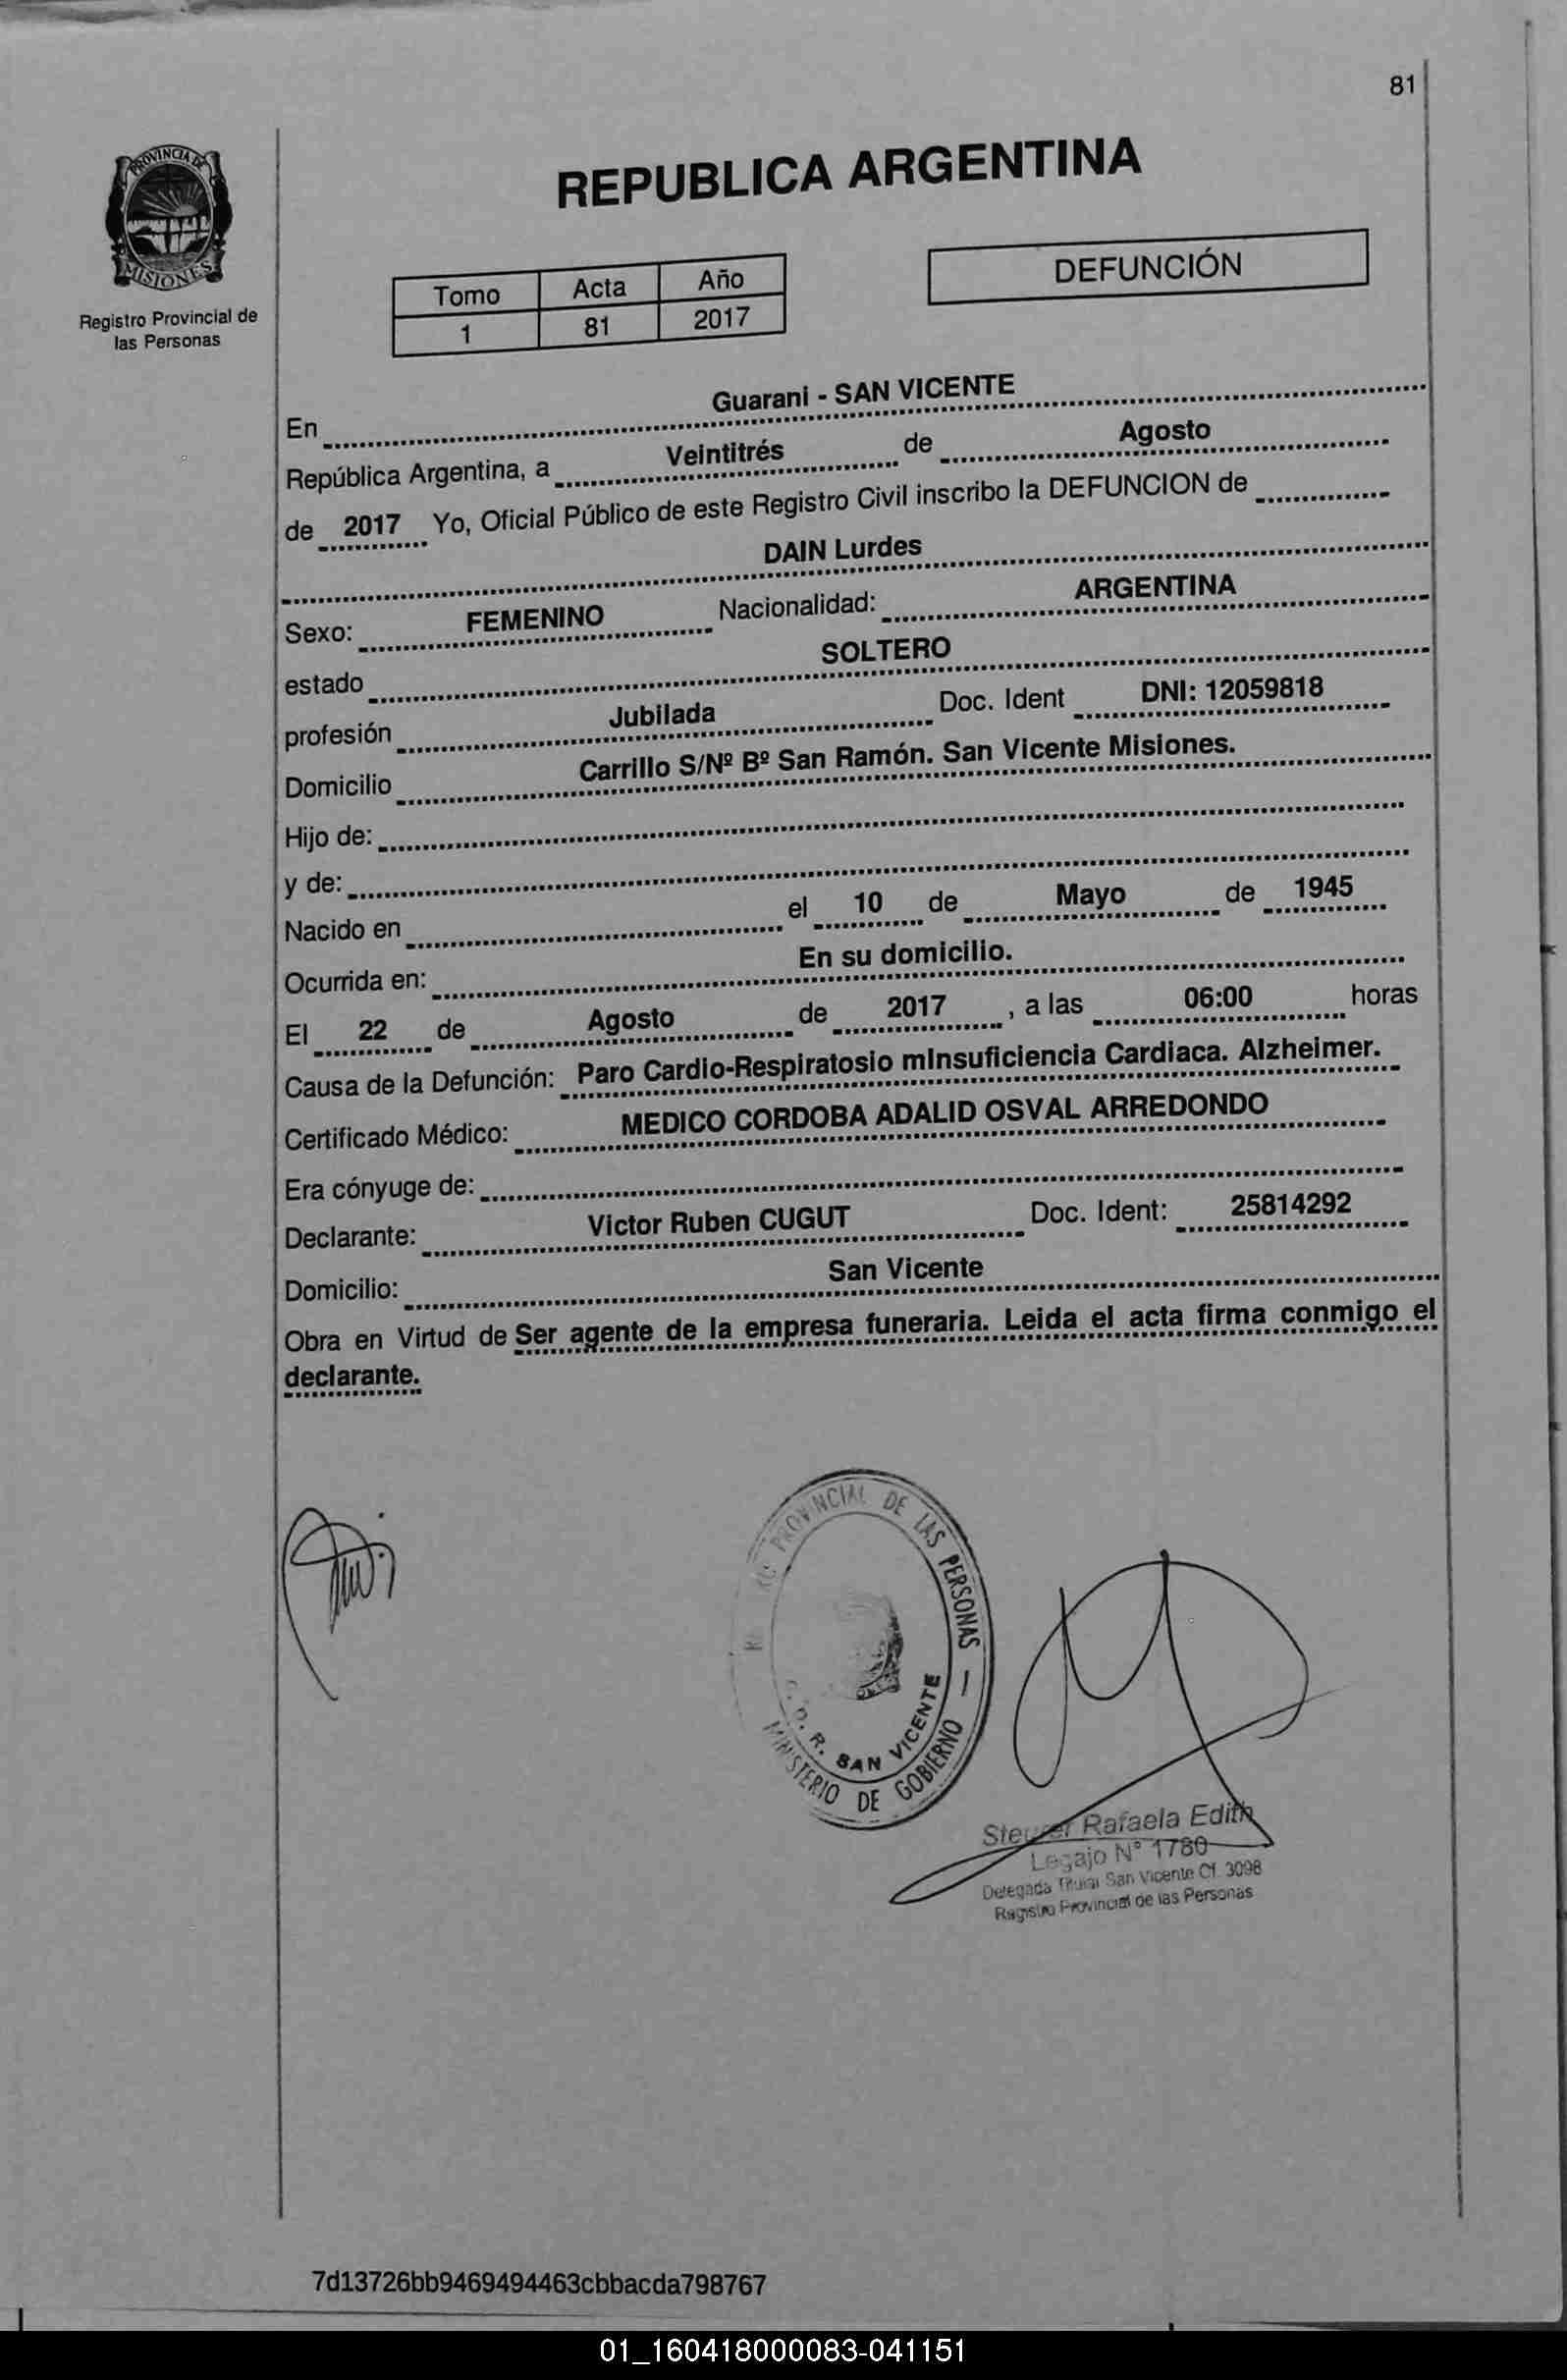 81
PROVINCIA DE
MISIONES
Registro Provincial de
las Personas
REPUBLICA ARGENTINA
Tomo Acta Año
1 81 2017
DEFUNCIÓN
En Guarani - SAN VICENTE
República Argentina, a Veintitrés de Agosto
de 2017 Yo, Oficial Público de este Registro Civil inscribo la DEFUNCION de
DAIN Lurdes
Sexo: FEMENINO Nacionalidad: ARGENTINA
estado SOLTERO
profesión Jubilada Doc. Ident DNI: 12059818
Domicilio Carrillo S/Nº Bº San Ramón. San Vicente Misiones.
Hijo de:
y de:
Nacido en el 10 de Mayo de 1945
Ocurrida en: En su domicilio.
El 22 de Agosto de 2017 , a las 06:00 horas
Causa de la Defunción: Paro Cardio-Respiratosio mInsuficiencia Cardiaca. Alzheimer.
Certificado Médico: MEDICO CORDOBA ADALID OSVAL ARREDONDO
Era cónyuge de:
Declarante: Victor Ruben CUGUT Doc. Ident: 25814292
Domicilio: San Vicente
Obra en Virtud de Ser agente de la empresa funeraria. Leida el acta firma conmigo el
declarante.
PROVINCIAL DE LAS PERSONAS —
D. R. SAN VICENTE
MINISTERIO DE GOBIERNO
Rafaela Edith
Legajo N° 1780
Delegada Titular San Vicente Cf. 3098
Registro Provincial de las Personas
7d13726bb9469494463cbbacda798767
01_160418000083-041151